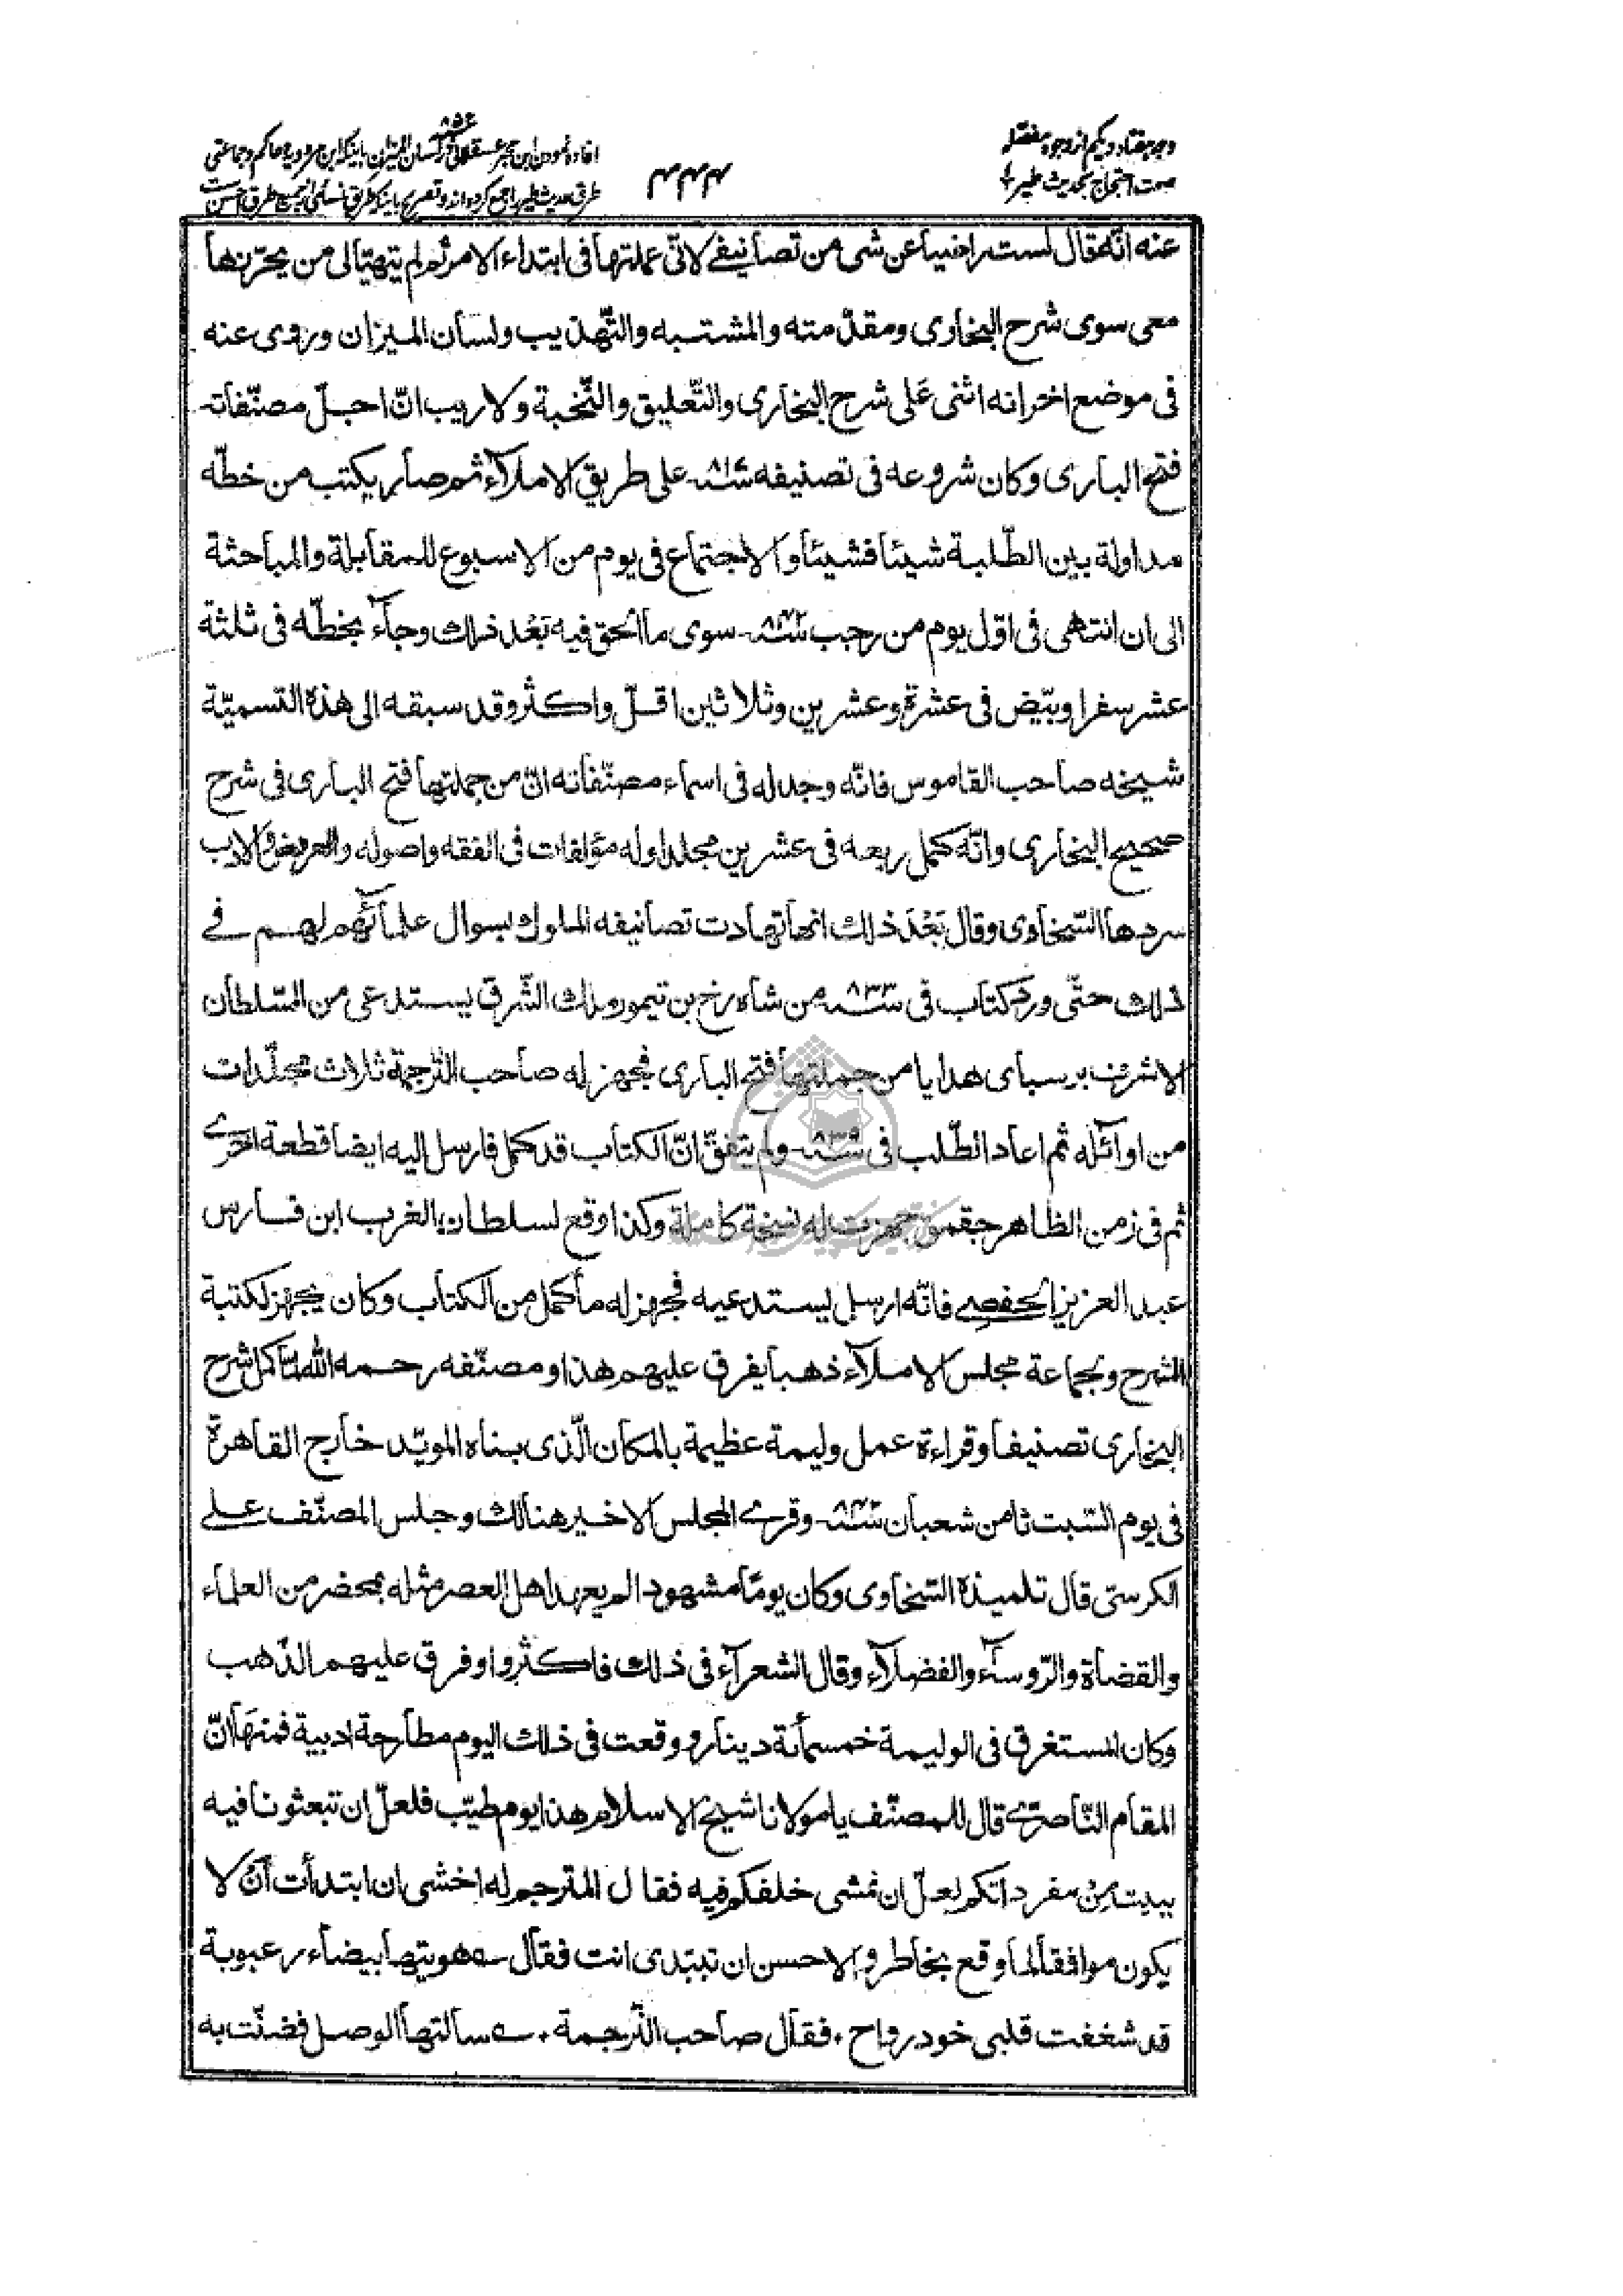 وجه هفتاد ویکم از وجوه مفصله
صحت احتجاج بحدیث طیر
۴۴۴
افاده نمودن ابن حجر عسقلانی در لسان المیزان باینکه ابن مردویه وحاکم وجماعتی
طرق حدیث طیر را جمع کرده اند وتصریح باینکه طریق نسائی از جمیع طرق احسن است
عنه انّه قال لست راضیا عن شی من تصانیفے لانّی عملتها فی ابتداء الامر ثم لم یتهیّالی من یحرّرها
معی سوی شرح البخاری ومقدّمته والمشتبه والتّهذیب ولسان المیزان وروی عنه
فی موضع اخر انه اثنی عَلی شرح البخاری والتّعلیق والنّخبة ولاریب انّ اجلّ مصنّفاته
فتح الباری وکان شروعه فی تصنیفه سنه ۸۱۷ علی طریق الاملآء ثم صار یکتب من خطّه
مداولة بین الطّلبة شیئا فشیئا والاجتماع فی یوم من الاسبوع للمقابلة والمباحثة
الی ان انتهی فی اوّل یوم من رجب سنه ۸۴۲ سوی ما الحق فیه بَعْد ذلك وجآء بخطّه فی ثلثة
عشر سفرا وبیّض فی عشرة وعشرین وثلاثین اقلّ واکثر وقد سبقه الی هذه التسمیّة
شیخه صاحب القاموس فانّه وجد له فی اسماء مصنّفاته انّ من جملتها فتح الباری فی شرح
صحیح البخاری وانّه کمّل ربعه فی عشرین مجلدا وله مؤلفات فی الفقه واصوله والعروض والادب
سردها السّخاوی وقال بَعْدَ ذلك انها تهادت تصانیفه الملوك بسوال علمآئهم لهم فے
ذلك حتّی ورد کتاب فی سنه ۸۳۳ من شاه رخ بن تیمور ملك الشّرق یستدعی من السّلطان
الاشرف برسبای هدایا من جملتها فتح الباری فجهز له صاحب التّرجمة ثلاث مجلّدات
من اوآئله ثم اعاد الطّلب فی سنه ۸۳۹ ولم یتفقّ انّ الکتاب قد کمل فارسل الیه ایضا قطعة اخرے
ثم فی زمن الظاهر جقمق جهزت له نسخة کاملة وکذا وقع لسلطان الغرب ابن فارس
عبد العزیز الحفصے فانّه ارسل یستدعیه فجهز له ما کمل من الکتاب وکان یجهز لکتبة
الشرح ولجماعة مجلس الاملآء ذهبا یفرق علیهم هذا ومصنّفه رحمه الله لما کمل شرح
البخاری تصنیفا وقراءة عمل ولیمة عظیمة بالمکان الّذی بناه المویّد خارج القاهرة
فی یوم السّبت ثامن شعبان سنه ۸۴۲ وقرے المجلس الاخیر هنالك وجلس المصنّف علے
الکرسیّ قال تلمیذه السّخاوی وکان یوما مشهودا لم یعهد اهل العصر مثله بمحضر من العلماء
والقضاة والرّوسآء والفضلآء وقال الشعرآء فی ذلك فاکثروا وفرق علیهم الذّهب
وکان المستغرق فی الولیمة خمسمأة دینار ووقعت فی ذلك الیوم مطارحة ادبیة فمنها انّ
المقام النّاصرے قال للمصنّف یا مولانا شیخ الاسلام هذا یوم طیّب فلعلّ ان تبعثونا فیه
ببیت من مفرداتکم لعلّ ان نمشی خلفکم فیه فقال المترجم له اخشی ان ابتدأت أنْ لا
یکون موافقا لما وقع بخاطر والاحسن ان تبتدی انت فقال ے هویتها بیضاء رعبوبة
قد شغفت قلبی خود رواح ۰ فقال صاحب التّرجمة ۰ ے سألتها الوصل فضنّت به